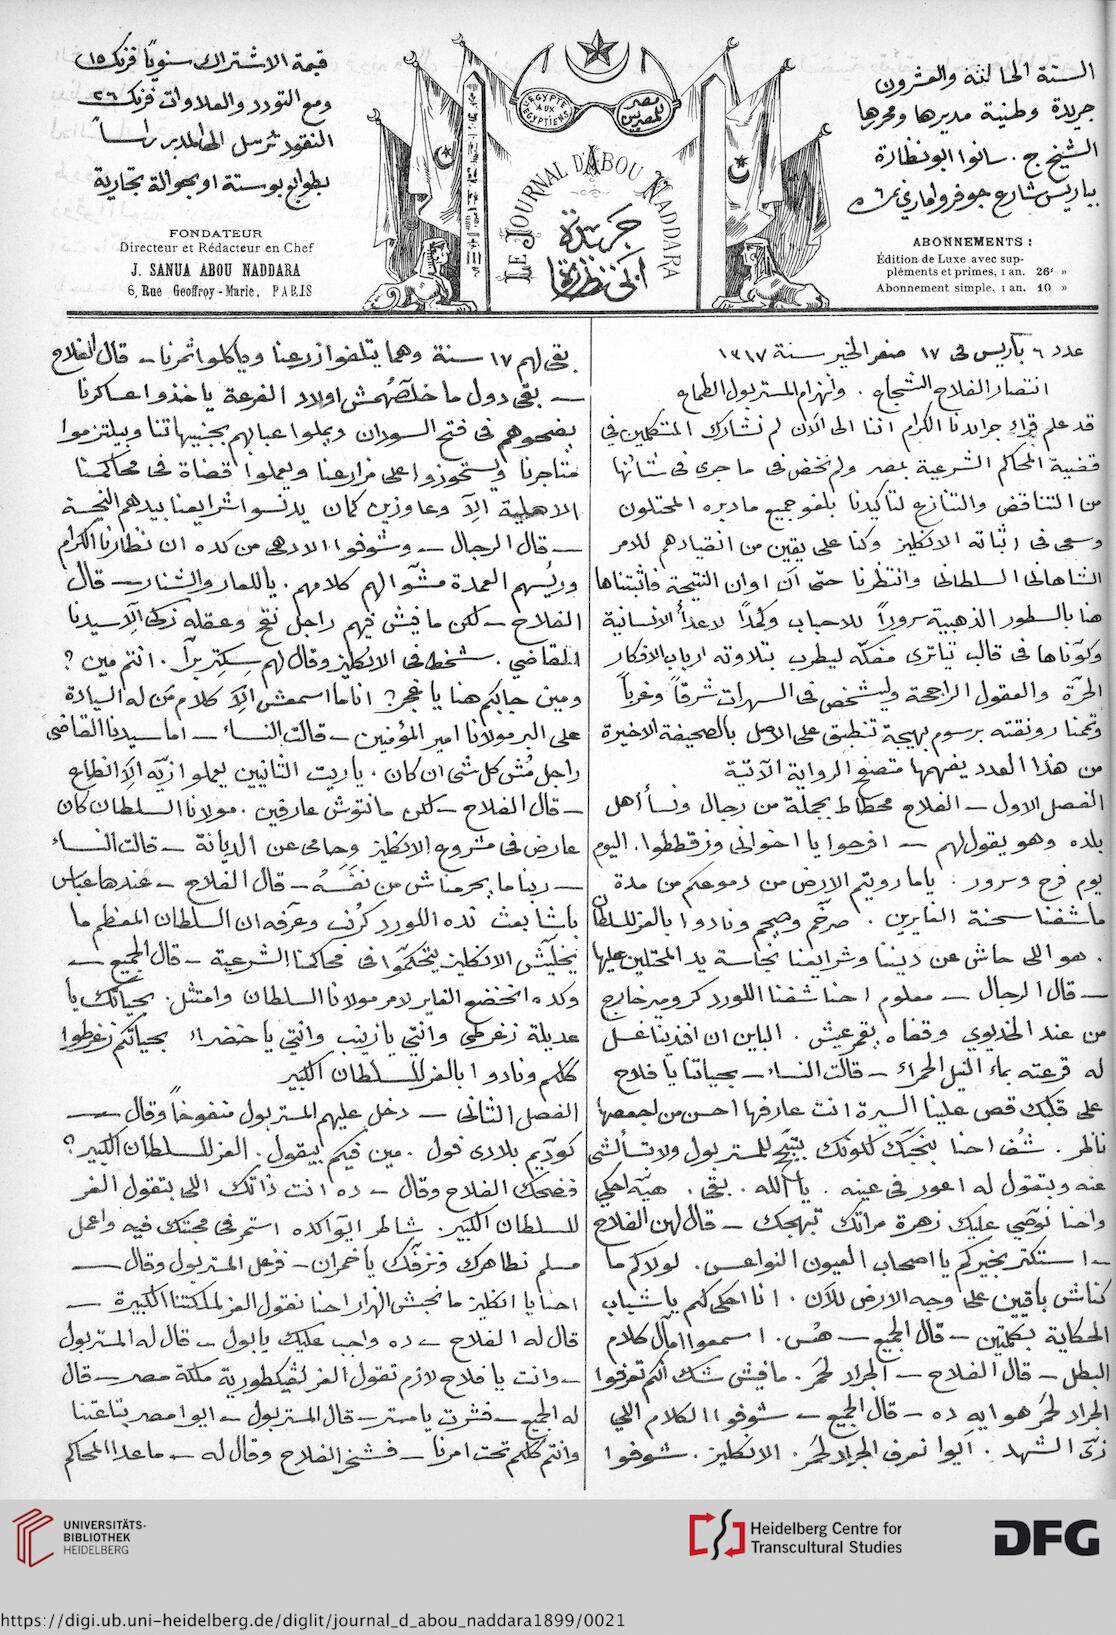 السنة الحادية والعشرون
جريدة وطنية مديرها ومحررها
الشيخ ج. سانوا ابو نظارة
بباريس شارع جوفروا ماري نمرة ٦
ABONNEMENTS :
Édition de Luxe avec sup-
pléments et primes, 1 an. 26f »
Abonnement simple, 1 an. 10 »
EGYPTE
AUX
EGYPTIENS
مصر
للمصريين
LE JOURNAL D'ABOU NADDARA
جريدة
ابي نظارة
قيمة الاشتراك سنويًا فرنك ١٥
ومع التودد والعلاوات فرنك ٢٦
النقود ترسل الى المدير رأسا
بطوابع بوستة او بحوالة تجارية
FONDATEUR
Directeur et Rédacteur en Chef
J. SANUA ABOU NADDARA
6, Rue Geoffroy-Marie, PARIS
عدد ٦ باريس في ١٧ صفر الخير سنة ١٣١٧
انتصار الفلاح الشجاع . وانهزام المستر بول الطماع
قد علم قراء جرائدنا الكرام اننا الى الآن لم نشارك المتكلمين في
قضية المحاكم الشرعية بمصر ولم نخض في ما جرى في شأنها
من التناقض والتنازع لتأكيدنا بلغو جميع ما دبره المحتلون
وسعى في اثباته الانكليز وكنا على يقين من انقيادهم للامر
الشاهاني السلطاني وانتظرنا حتى آن اوان النتيجة فاثبتناها
هنا بالسطور الذهبية سرورًا للاحباب وكمدًا لاعداء الانسانية
وكوّناها في قالب تياتري مضحكة ليطرب بتلاوته ارباب الافكار
الحرّة والعقول الراجحة وليشخص في السهرات شرقًا وغربًا
وتممنا رونقته برسوم بهيجة تنطبق على الاصل بالصحيفة الاخيرة
من هذا العدد يفهمها متصفح الرواية الآتية
الفصل الاول – الفلاح محطاط بجملة من رجال ونسأ اهل
بلده وهو يقول لهم – افرحوا يا اخواني وزقططوا. اليوم
يوم فرح وسرور . ياما رويتم الارض من دموعكم من مدة
ما شفنا سحنة الغايرين . صرّخم وصبحم ونادوا بالعز للسلطان
. هو اللي حاش عن ديننا وشرايعنا نجاسة يد المحتلين عليها
– قال الرجال – معلوم احنا شفنا اللورد كرومر خارج
من عند الخديوي وقفاه يقمر عيش . الباين ان افندينا غسل
له قرعته بماء النيل الحمراء – قالت النساء – بحياتنا يا فلاح
على قلبك قص علينا السيرة انت عارفها احسن من لجعصها
ناطر . شُف احنا بنحبّك لكونك للمستر بول ولا تسألشي
عنه وبتقول له اعور في عينه . يا الله . بقى . هيّه احكي
واحنا نوصّي عليك زهرة مراتك تبهجك – قال لهن الفلاح
– استكتر بخيركم يا اصحاب العيون النواعس. لولاكم ما
كناش باقيين على وجه الارض للآن . انا احكي لكم يا شباب
الحكاية بكلمتين – قال الجميع – هُس. اسمعوا امّال كلام
البطل – قال الفلاح – الجراد لحمر. مافيش شك انكم تعرفوا
الجراد لحمر هو ايه ده – قال الجميع – شوفوا الكلام اللي
زيّ الشهد . أيوا نعرف الجراد لحمر. الانكليز. شوفوا
بقى لهم ١٧ سنة وهما يتلفوا زرعنا وياكلوا ثمرنا – قال الفلاح
– بقى دول ما خلصهمش اولاد القرعة ياخذوا عساكرنا
يضحوهم في فتح السودان ويملوا عبابهم بجنيهاتنا ويلتزموا
متاجرنا ويستحوزوا على مزارعنا ويعملوا قضاة في محاكمنا
الاهلية الّا وعاوزين كمان يدنسوا شرايعنا بيدهم النجسة
– قال الرجال – وشوفوا الادهى من كده ان نظارنا الكرام
وريّسهم العمدة مشّوا لهم كلامهم . يا للعار والشنار – قال
الفلاح – لكن مافيش فيهم راجل نقح وعقله زكي الّا سيدنا
القاضي . شخط في الانكليز وقال لهم سِكتِر برّا . انتم مين ؟
ومين جابكم هنا يا غجر؟ انا ما اسمعش الّا كلام من له السيادة
على البر مولانا امير المؤمنين – قالت النساء – اما سيدنا القاضي
راجل مُش كل شي ان كان . ياريت الثانيين يعملوا زيّه الّا انطاع
– قال الفلاح – لكن مانتوش عارفين . مولانا السلطان كان
عارض في مشروع الانكليز وحامى عن الديانة – قالت النساء
– ربنا ما يحرمناش من نفَسُه – قال الفلاح – عندها عباس
باشا بعث نده اللورد كرُنب وعرّفه ان السلطان المعظم ما
يخليّش الانكليز يتحكّموا في محاكمنا الشرعية – قال الجميع –
وكده انخضع الغاير لامر مولانا السلطان وامتثل . بحياتك يا
عديلة زغرطي وانتي يا زينب وانتي يا خضراء بحياتكم زغرطوا
كلكم ونادوا بالعز للسلطان الكبير
الفصل الثاني – دخل عليهم المستر بول منفوخًا وقال –
كودّيم بلادي فول . مين فيكم بيقول . العز للسلطان الكبير؟
فضحك الفلاح وقال – ده انت ذاتك اللي بتقول العز
للسلطان الكبير. شاطر ايّوا كده استمر في محبتك فيه واعمل
مسلم نطاهرك ونزفّك يا خمران – فزعل المستر بول وقال –
احنا يا انكليز ما نحبش الهزار احنا نقول العز لملكتنا الكبيرة –
قال له الفلاح – ده واجب عليك يا بول – قال له المستر بول
– وانت يا فلاح لازم تقول العز لڤيكطورية ملكة مصر – قال
له الجميع – فشرت يا مستر – قال المستر بول – ايوا مصر بتاعتنا
وانتم كلكم تحت امرنا – فشخر الفلاح وقال له – ما عدا المحاكم
UNIVERSITÄTS-
BIBLIOTHEK
HEIDELBERG
Heidelberg Centre for
Transcultural Studies
DFG
https://digi.ub.uni-heidelberg.de/diglit/journal_d_abou_naddara1899/0021